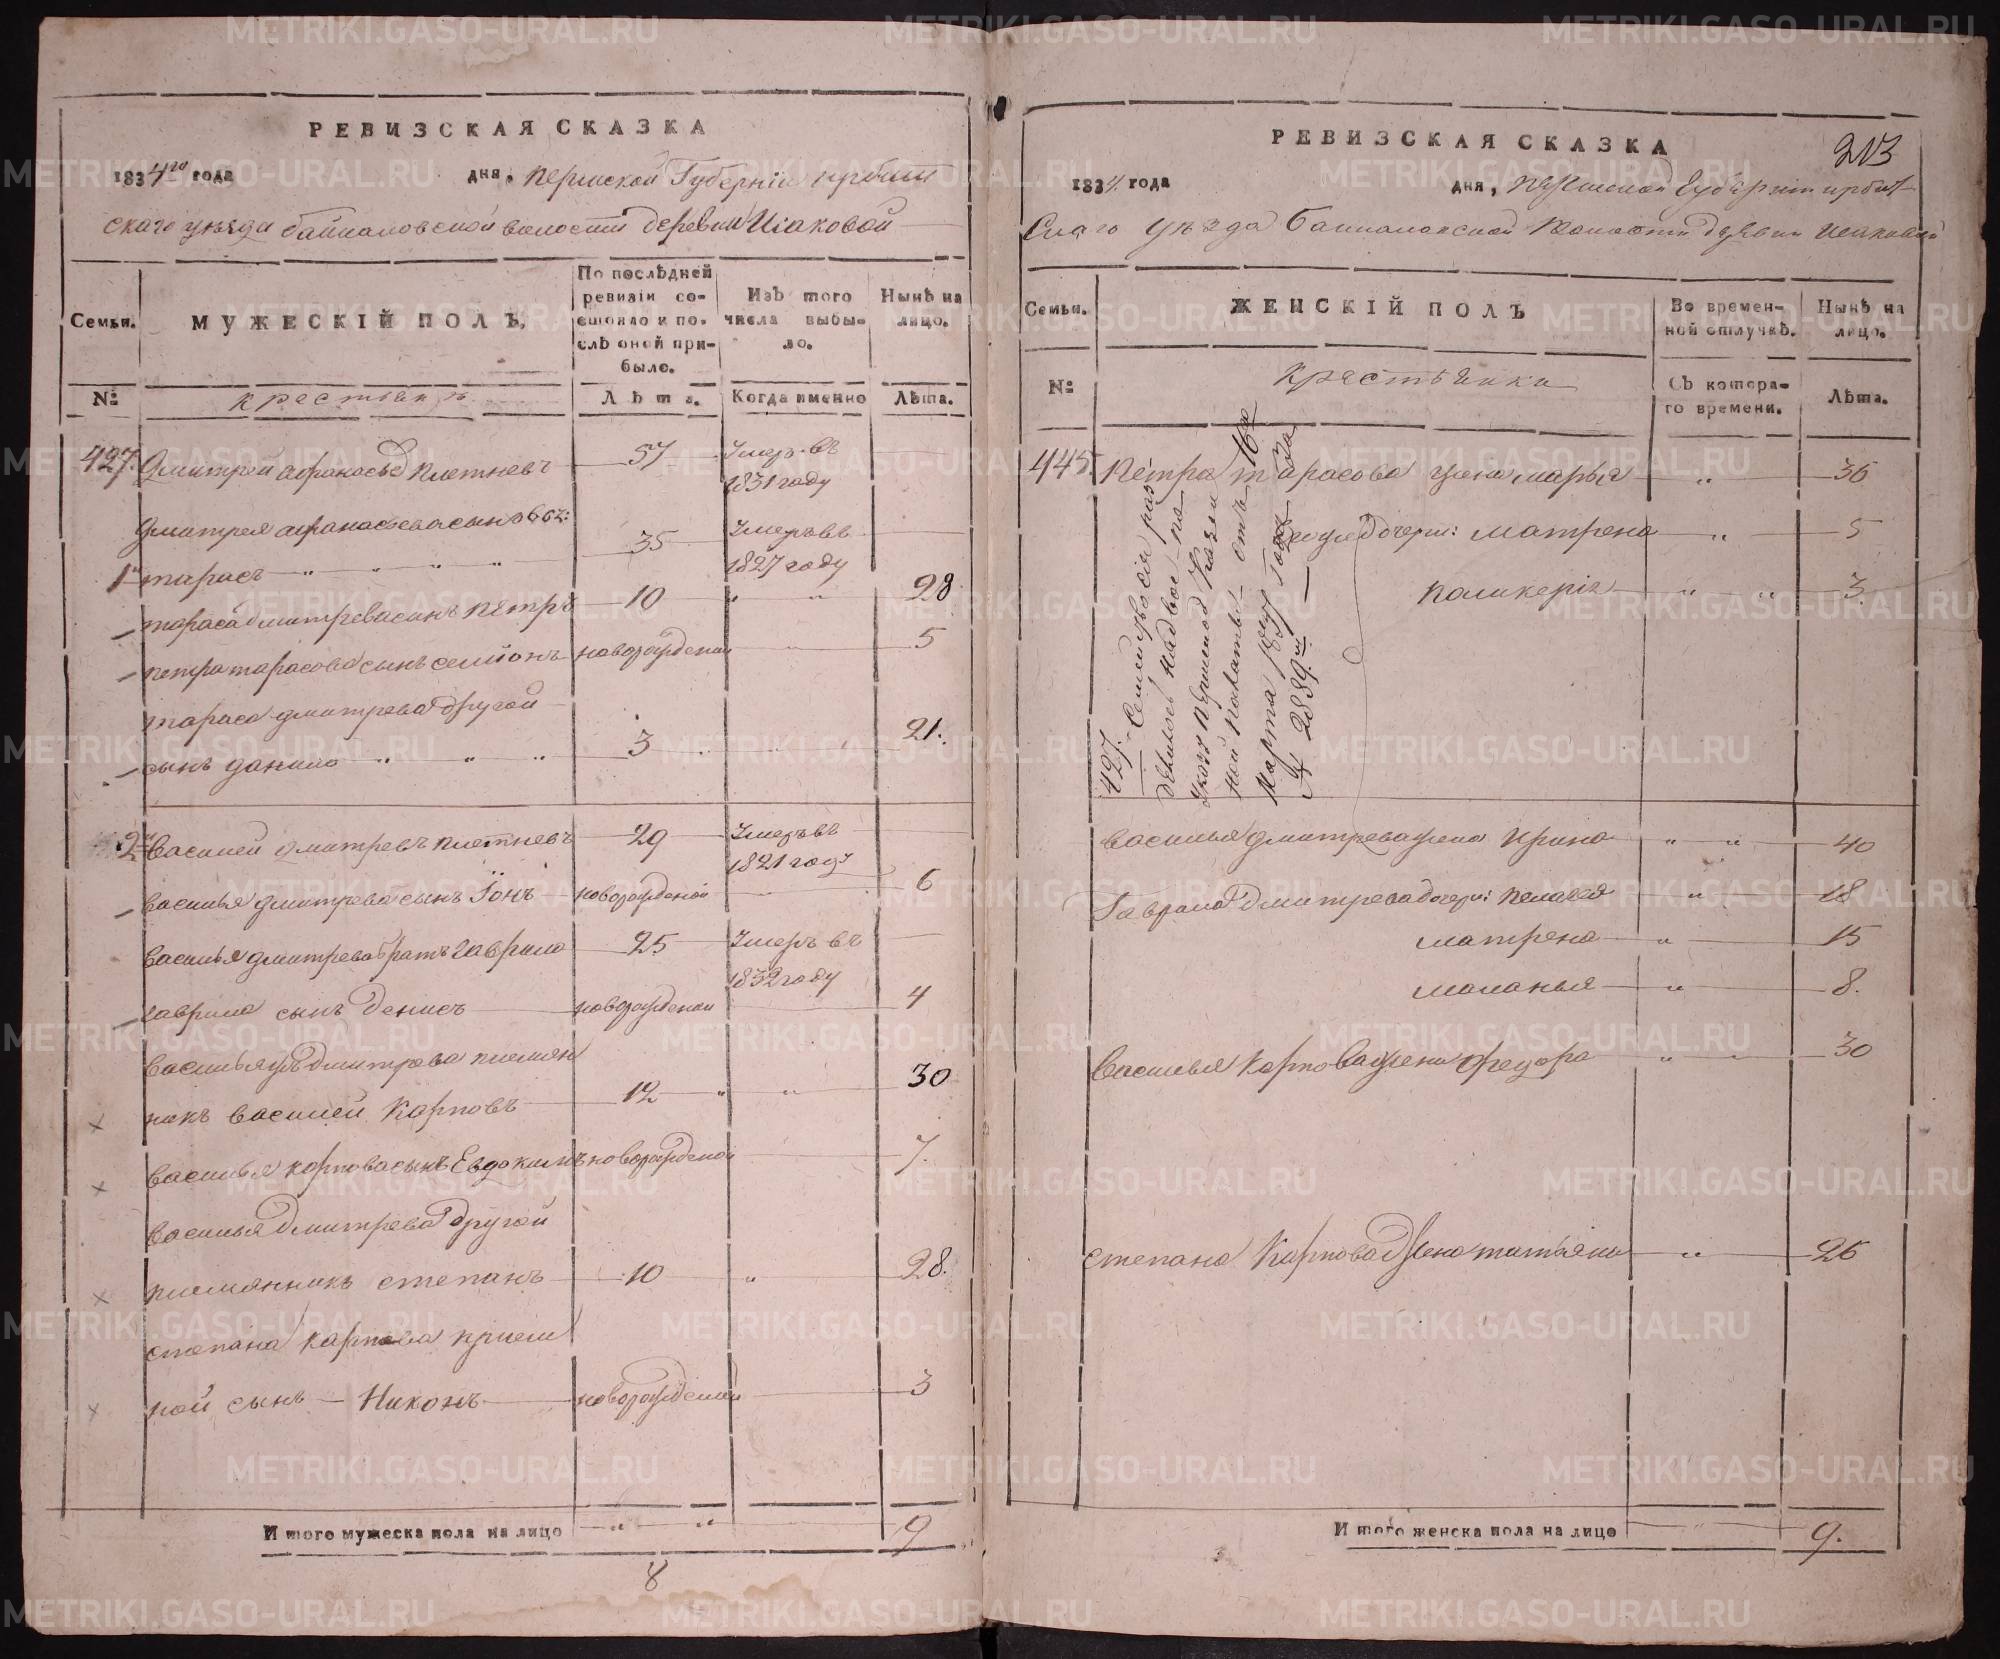 РЕВИЗСКАЯ СКАЗКА
1834го года дня, Пермской Губерніи ирбит
скаго уезда байкаловской волости деревни Исаковой
Семьи. МУЖЕСКІЙ ПОЛЪ.
По послѣдней ревизіи состояло и послѣ оной прибыло.
Изъ того числа выбыло.
Нынѣ на лицо.
№ крестьянъ Лѣта. Когда именно Лѣта.
427. Дмитрей афонасьев плетневъ 57 Умер въ
1831 году
Дмитрея афанасьева сыновья:
1й тарасъ 35 Умеръ въ
1827 году
тараса дмитрева сынъ Петръ 10 28
петра тарасова сынъ семионъ новорожденой 5
тараса дмитрева другой
сынъ данило 3 21.
2й Василей дмитревъ плетневъ 29 Умеръ въ
1821 году
василья дмитрева сынъ Іонъ новорожденой 6
василья дмитрева братъ гаврило 25 Умеръ въ
1832 году
гаврила сынъ денисъ новорожденой 4
василья дмитрева племян
никъ василей Карповъ 12 30
василья карпова сынъ Евдокимъ новорожденой 7.
василья дмитрева другой
племянникъ степанъ 10 28.
степана карпова прием
ной сынъ — Никонъ новорожденой 3
И того мужеска пола на лицо 9
8
213
РЕВИЗСКАЯ СКАЗКА
1834. года дня, пермской губерніи ирбит
Скаго уѣзда Байкаловской волости деревни Исаковой
Семьи. ЖЕНСКІЙ ПОЛЪ
Во временной отлучкѣ.
Нынѣ на лицо.
№ крестьянки Съ котораго времени. Лѣта.
445. Петра тарасова жена марья 36
дочери: матрена 5
поликерія 3.
427. Семейство раз
делилось надвое по
Указу Пермской Казен
ной Палаты отъ 16го
Марта 1847 года за
№ 2889.м
василья дмитрева жена Ирина 40
Гаврила дмитрева дочери: пелагея 18
матрена 15
маланья 8.
Василья карпова жена федора 30
степана Карпова жена татьяна 26
И того женска пола на лицо 9.
METRIKI.GASO-URAL.RU